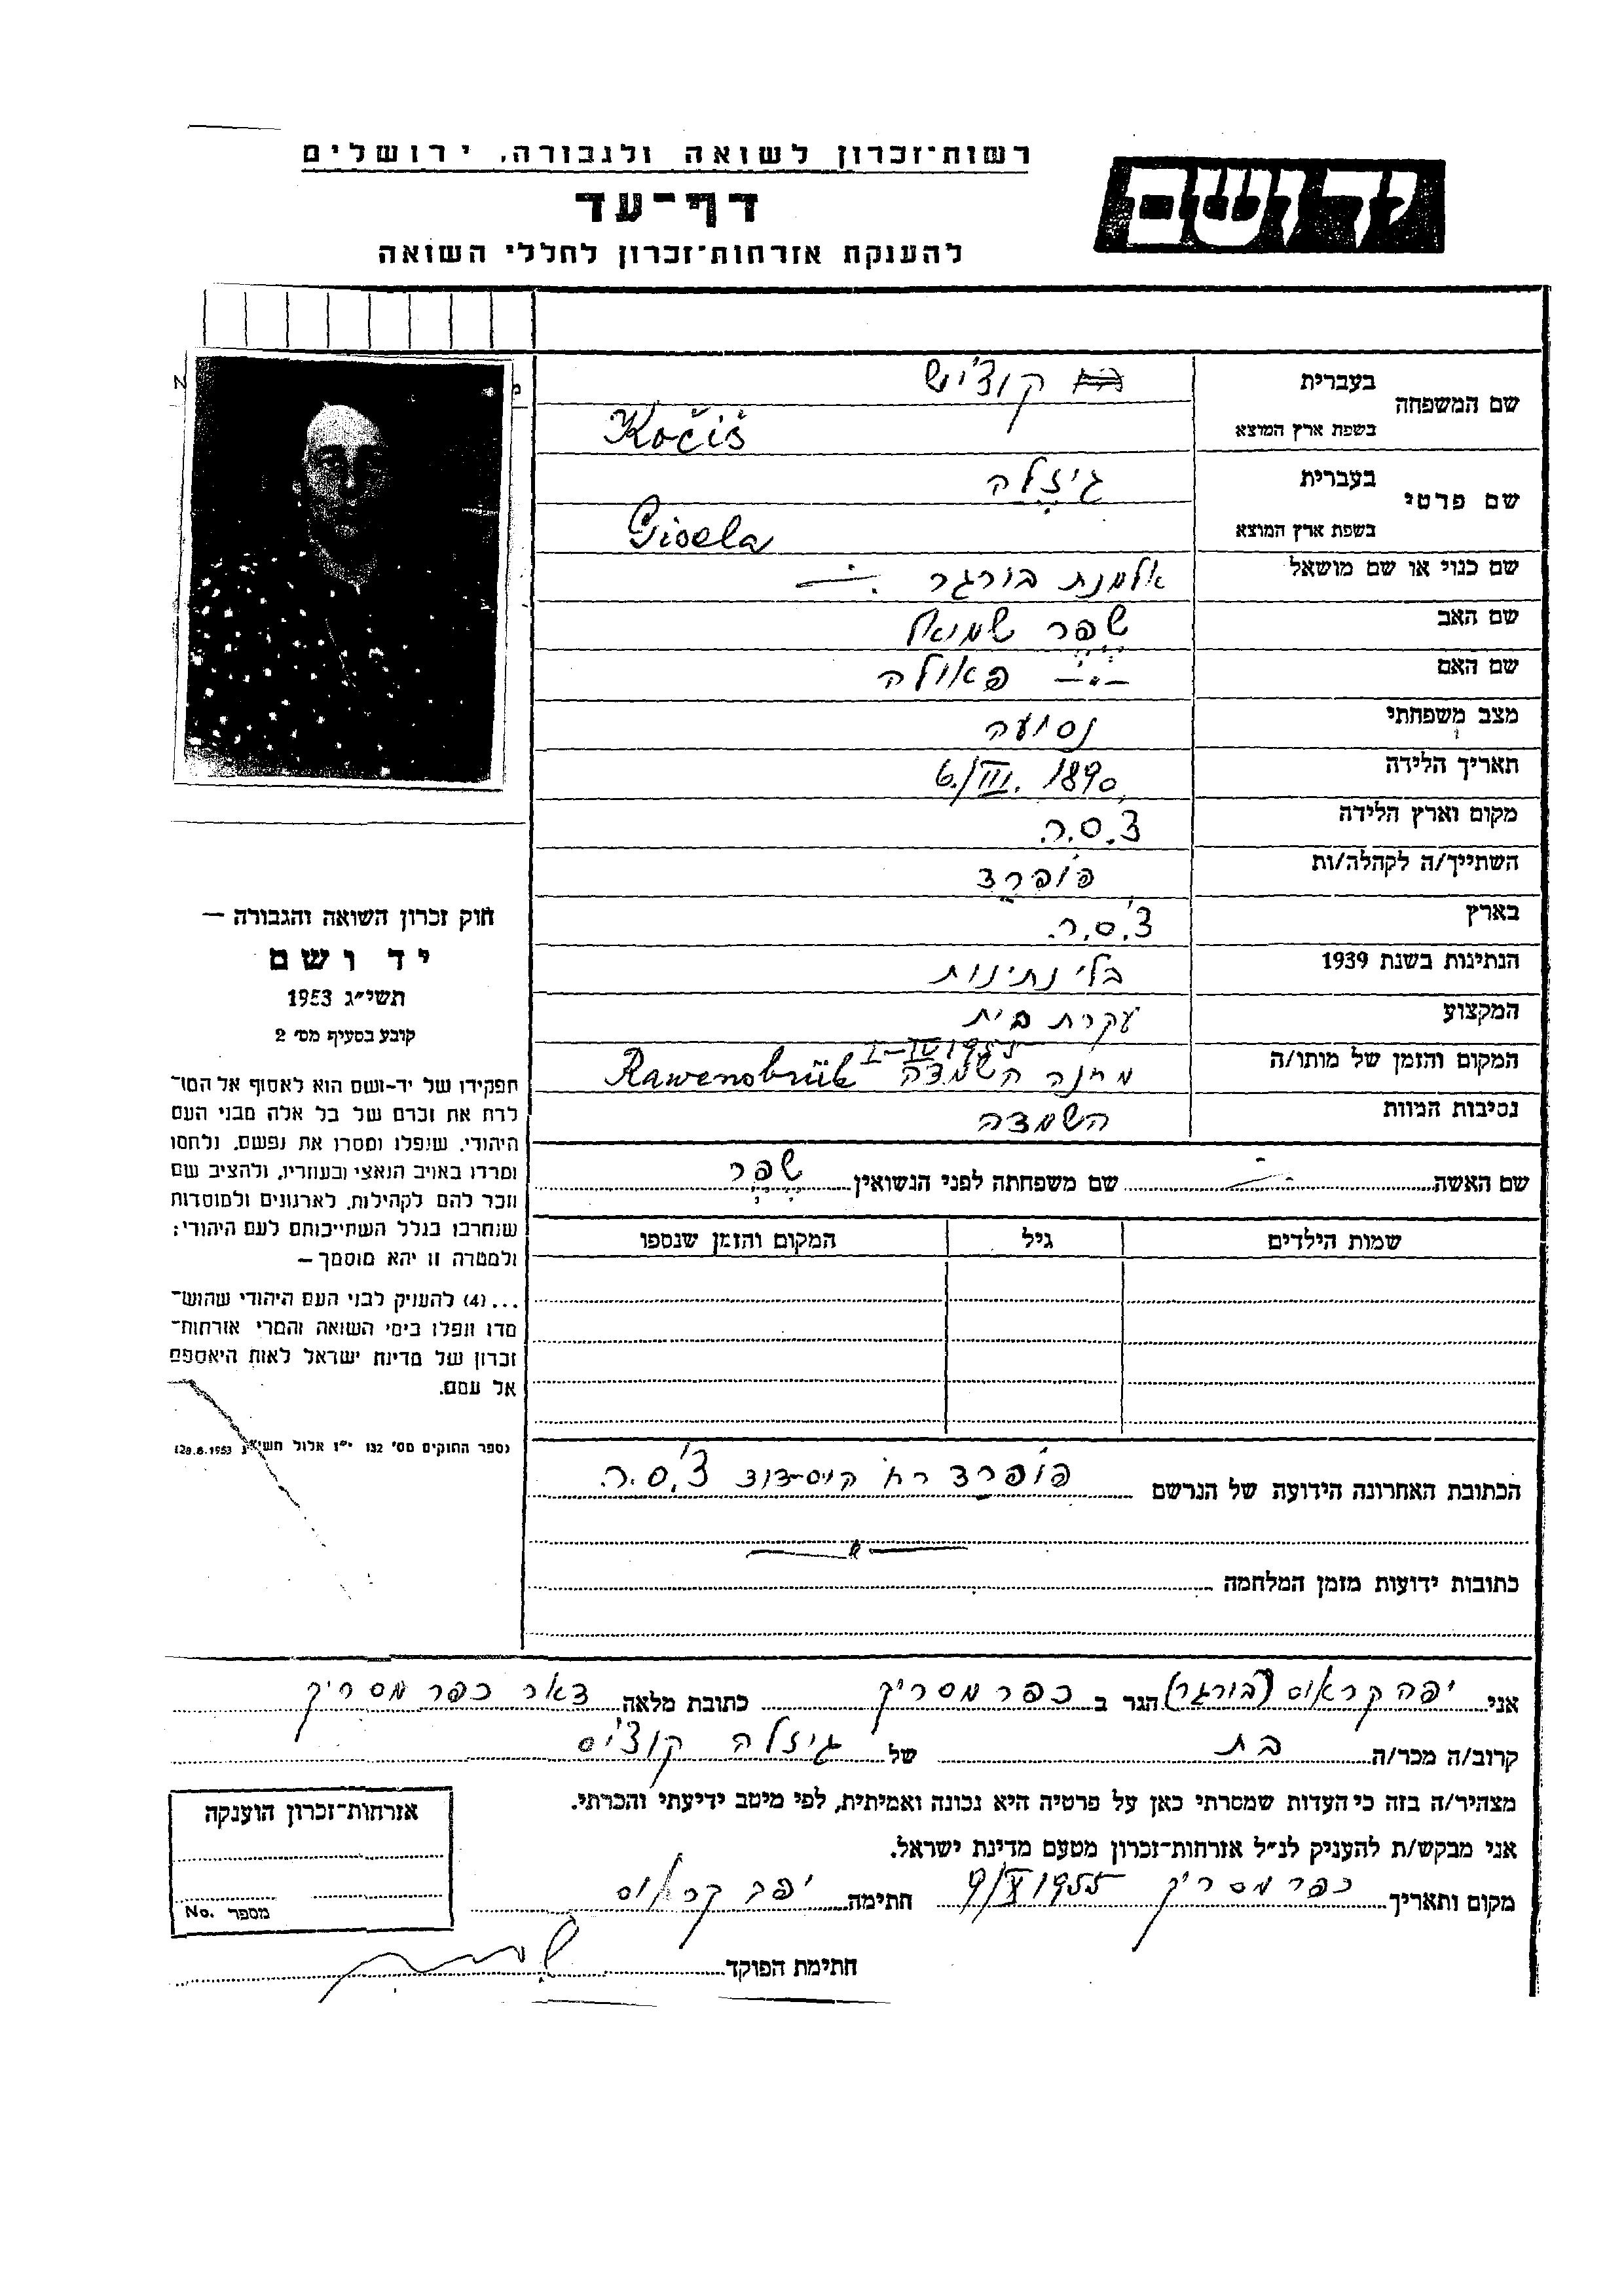 רשות־זכרון לשואה ולגבורה, ירושלים
יד ושם
דף־עד
להענקת אזרחות־זכרון לחללי השואה
שם המשפחה
בעברית
קוצ'יש
בשפת ארץ המוצא
Kočiš
שם פרטי
בעברית
גיזלה
בשפת ארץ המוצא
Gisela
שם כנוי או שם מושאל אלמנת בורגר
שם האב שפר שמואל
שם האם —"— פאולה
מצב משפחתי נשואה
תאריך הלידה 6./III. 1890
מקום וארץ הלידה צ'.ס.ר.
השתייך/ה לקהלה/ות פופרד
בארץ צ'.ס.ר.
הנתינות בשנת 1939 בלי נתינות
המקצוע עקרת בית
המקום והזמן של מותו/ה מחנה השמדה Rawensbrük
נסיבות המוות השמדה
שם האשה שם משפחתה לפני הנשואין שפר
שמות הילדים גיל המקום והזמן שנספו
חוק זכרון השואה והגבורה —
יד ושם
תשי״ג 1953
קובע בסעיף מס׳ 2
תפקידו של יד-ושם הוא לאסוף אל המו־
לדת את זכרם של כל אלה מבני העם
היהודי, שנפלו ומסרו את נפשם, נלחמו
ומרדו באויב הנאצי ובעוזריו, ולהציב שם
וזכר להם לקהילות, לארגונים ולמוסדות
שנחרבו בגלל השתייכותם לעם היהודי;
ולמטרה זו יהא מוסמך —
...(4) להעניק לבני העם היהודי שהוש־
מדו ונפלו בימי השואה והמרי אזרחות־
זכרון של מדינת ישראל לאות היאספם
אל עמם.
(ספר החוקים מס׳ 132 י״ז אלול תשי״ג 28.8.1953)
הכתובת האחרונה הידועה של הנרשם פופרד רח' צ'.ס.ר.
כתובות ידועות מזמן המלחמה
אני יפה קראוס (בורגר) הגר ב כפר מסריק כתובת מלאה דאר כפר מסריק
קרוב/ה מכר/ה בת של גיזלה קוצ'יס
מצהיר/ה בזה כי העדות שמסרתי כאן על פרטיה היא נכונה ואמיתית, לפי מיטב ידיעתי והכרתי.
אני מבקש/ת להעניק לנ״ל אזרחות־זכרון מטעם מדינת ישראל.
מקום ותאריך כפר מסריק 9/X 1955 חתימה יפה קראוס
חתימת הפוקד
אזרחות־זכרון הוענקה
מספר No.